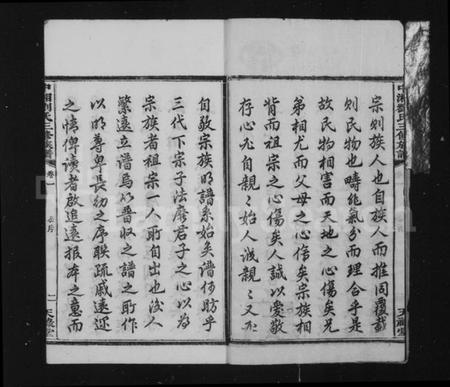 宗則族人也自族人而推同覆載
則民物也疇能氣分而理合乎是
故民物相害而天地之心傷矣兄
弟相尤而父母之心傷矣宗族相
背而祖宗之心傷矣人誠以愛敬
存心尤自親〻始人減親〻又不
自敬宗族明譜系始矣譜何昉乎
三代下宗子法廢君子之心以為
宗族者祖宗一人所自出也後人
繁遠立譜焉以普收之譜之所作
以明尊卑長幼之序聯疏戚遠近
之情俾讀者啟追遠報本之意而
中湘劉氏三修族譜
卷一